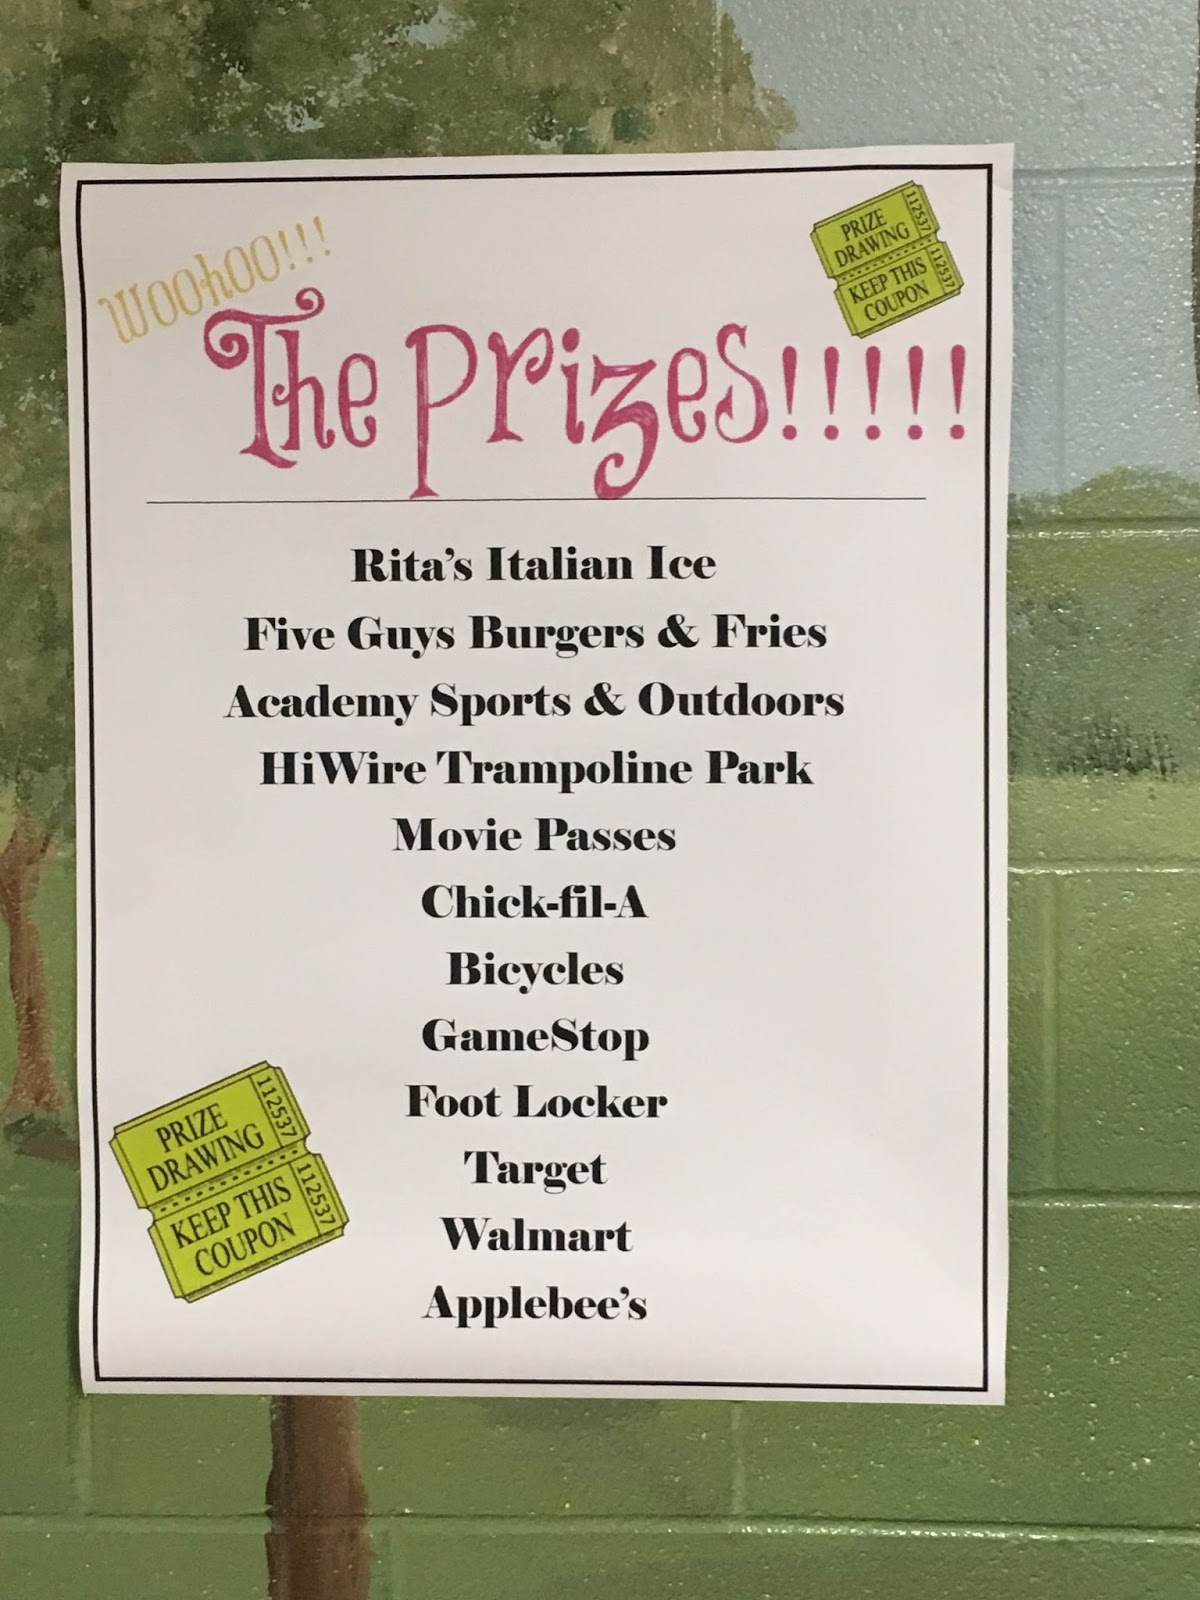 WOOhOO!!!
The prizes!!!!!
PRIZE
DRAWING
112537
KEEP THIS
COUPON
112537
Rita's Italian Ice
Five Guys Burgers & Fries
Academy Sports & Outdoors
HiWire Trampoline Park
Movie Passes
Chick-fil-A
Bicycles
GameStop
Foot Locker
Target
Walmart
Applebee's
PRIZE
DRAWING
112537
KEEP THIS
COUPON
112537